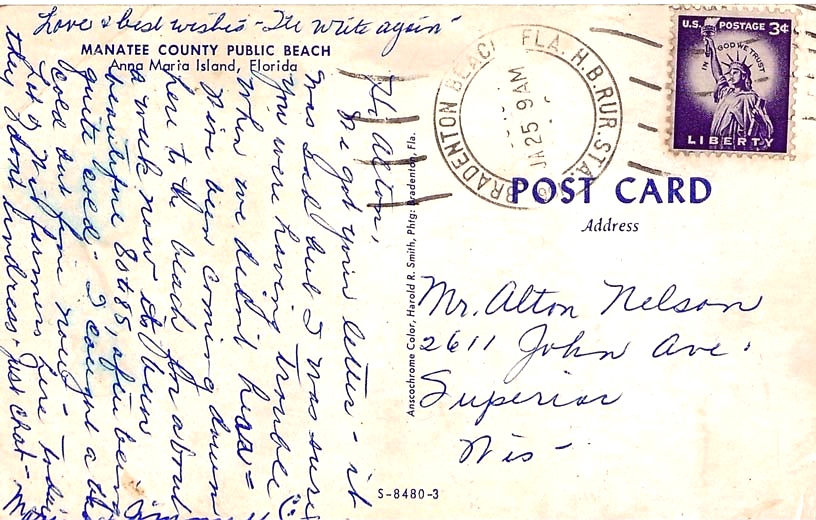 Love & best wishes - I'll write again -
MANATEE COUNTY PUBLIC BEACH
Anna Maria Island, Florida
Hi Alton,
We got your letter - it
was sad but I was sure
you were having trouble
When we didn't hear =
We've been coming down
here to the beach for about
a week now it's been
beautiful 80 + 85, after being
quite cold - I caught a
cold but fine now -
Lot of Wis farmers here today
they don't undress - just chat -
Anscochrome Color, Harold R. Smith, Phtg: Bradenton, Fla.
S-8480-3
BRADENTON BEACH FLA. H.B.RUR.STA.
JA 25 9 AM
U.S. POSTAGE 3¢
IN GOD WE TRUST
LIBERTY
POST CARD
Address
Mr. Alton Nelson
2611 John Ave.
Superior
Wis -